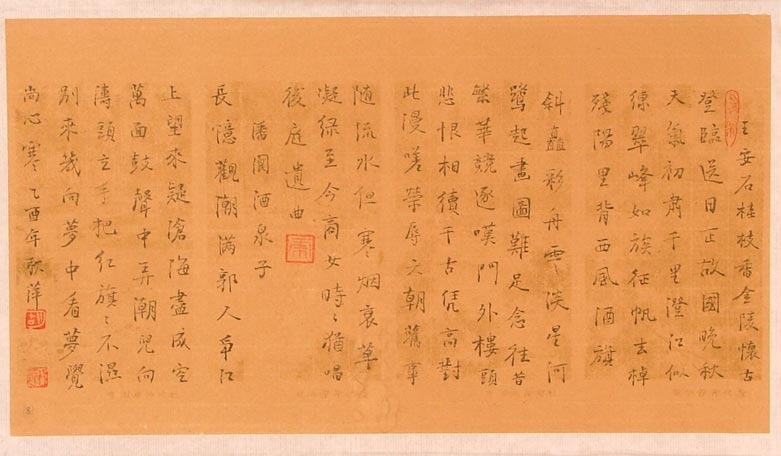 王安石桂枝香金陵懷古
登臨送目正故國晚秋
天氣初肅千里澄江似
練翠峰如簇征帆去棹
殘陽里背西風酒旗
斜矗彩舟雲淡星河
鷺起畫圖難足念往昔
繁華競逐嘆門外樓頭
悲恨相續千古凭高對
此漫嗟榮辱六朝舊事
隨流水但寒烟衰草
凝绿至今商女時〻猶唱
後庭遺曲
潘閬酒泉子
長憶觀潮满郭人爭江
上望來疑滄海盡成空
萬面鼓聲中弄潮兒向
濤頭立手把红旗〻不濕
別來幾向夢中看夢覺
尚心寒 乙酉年秋萍